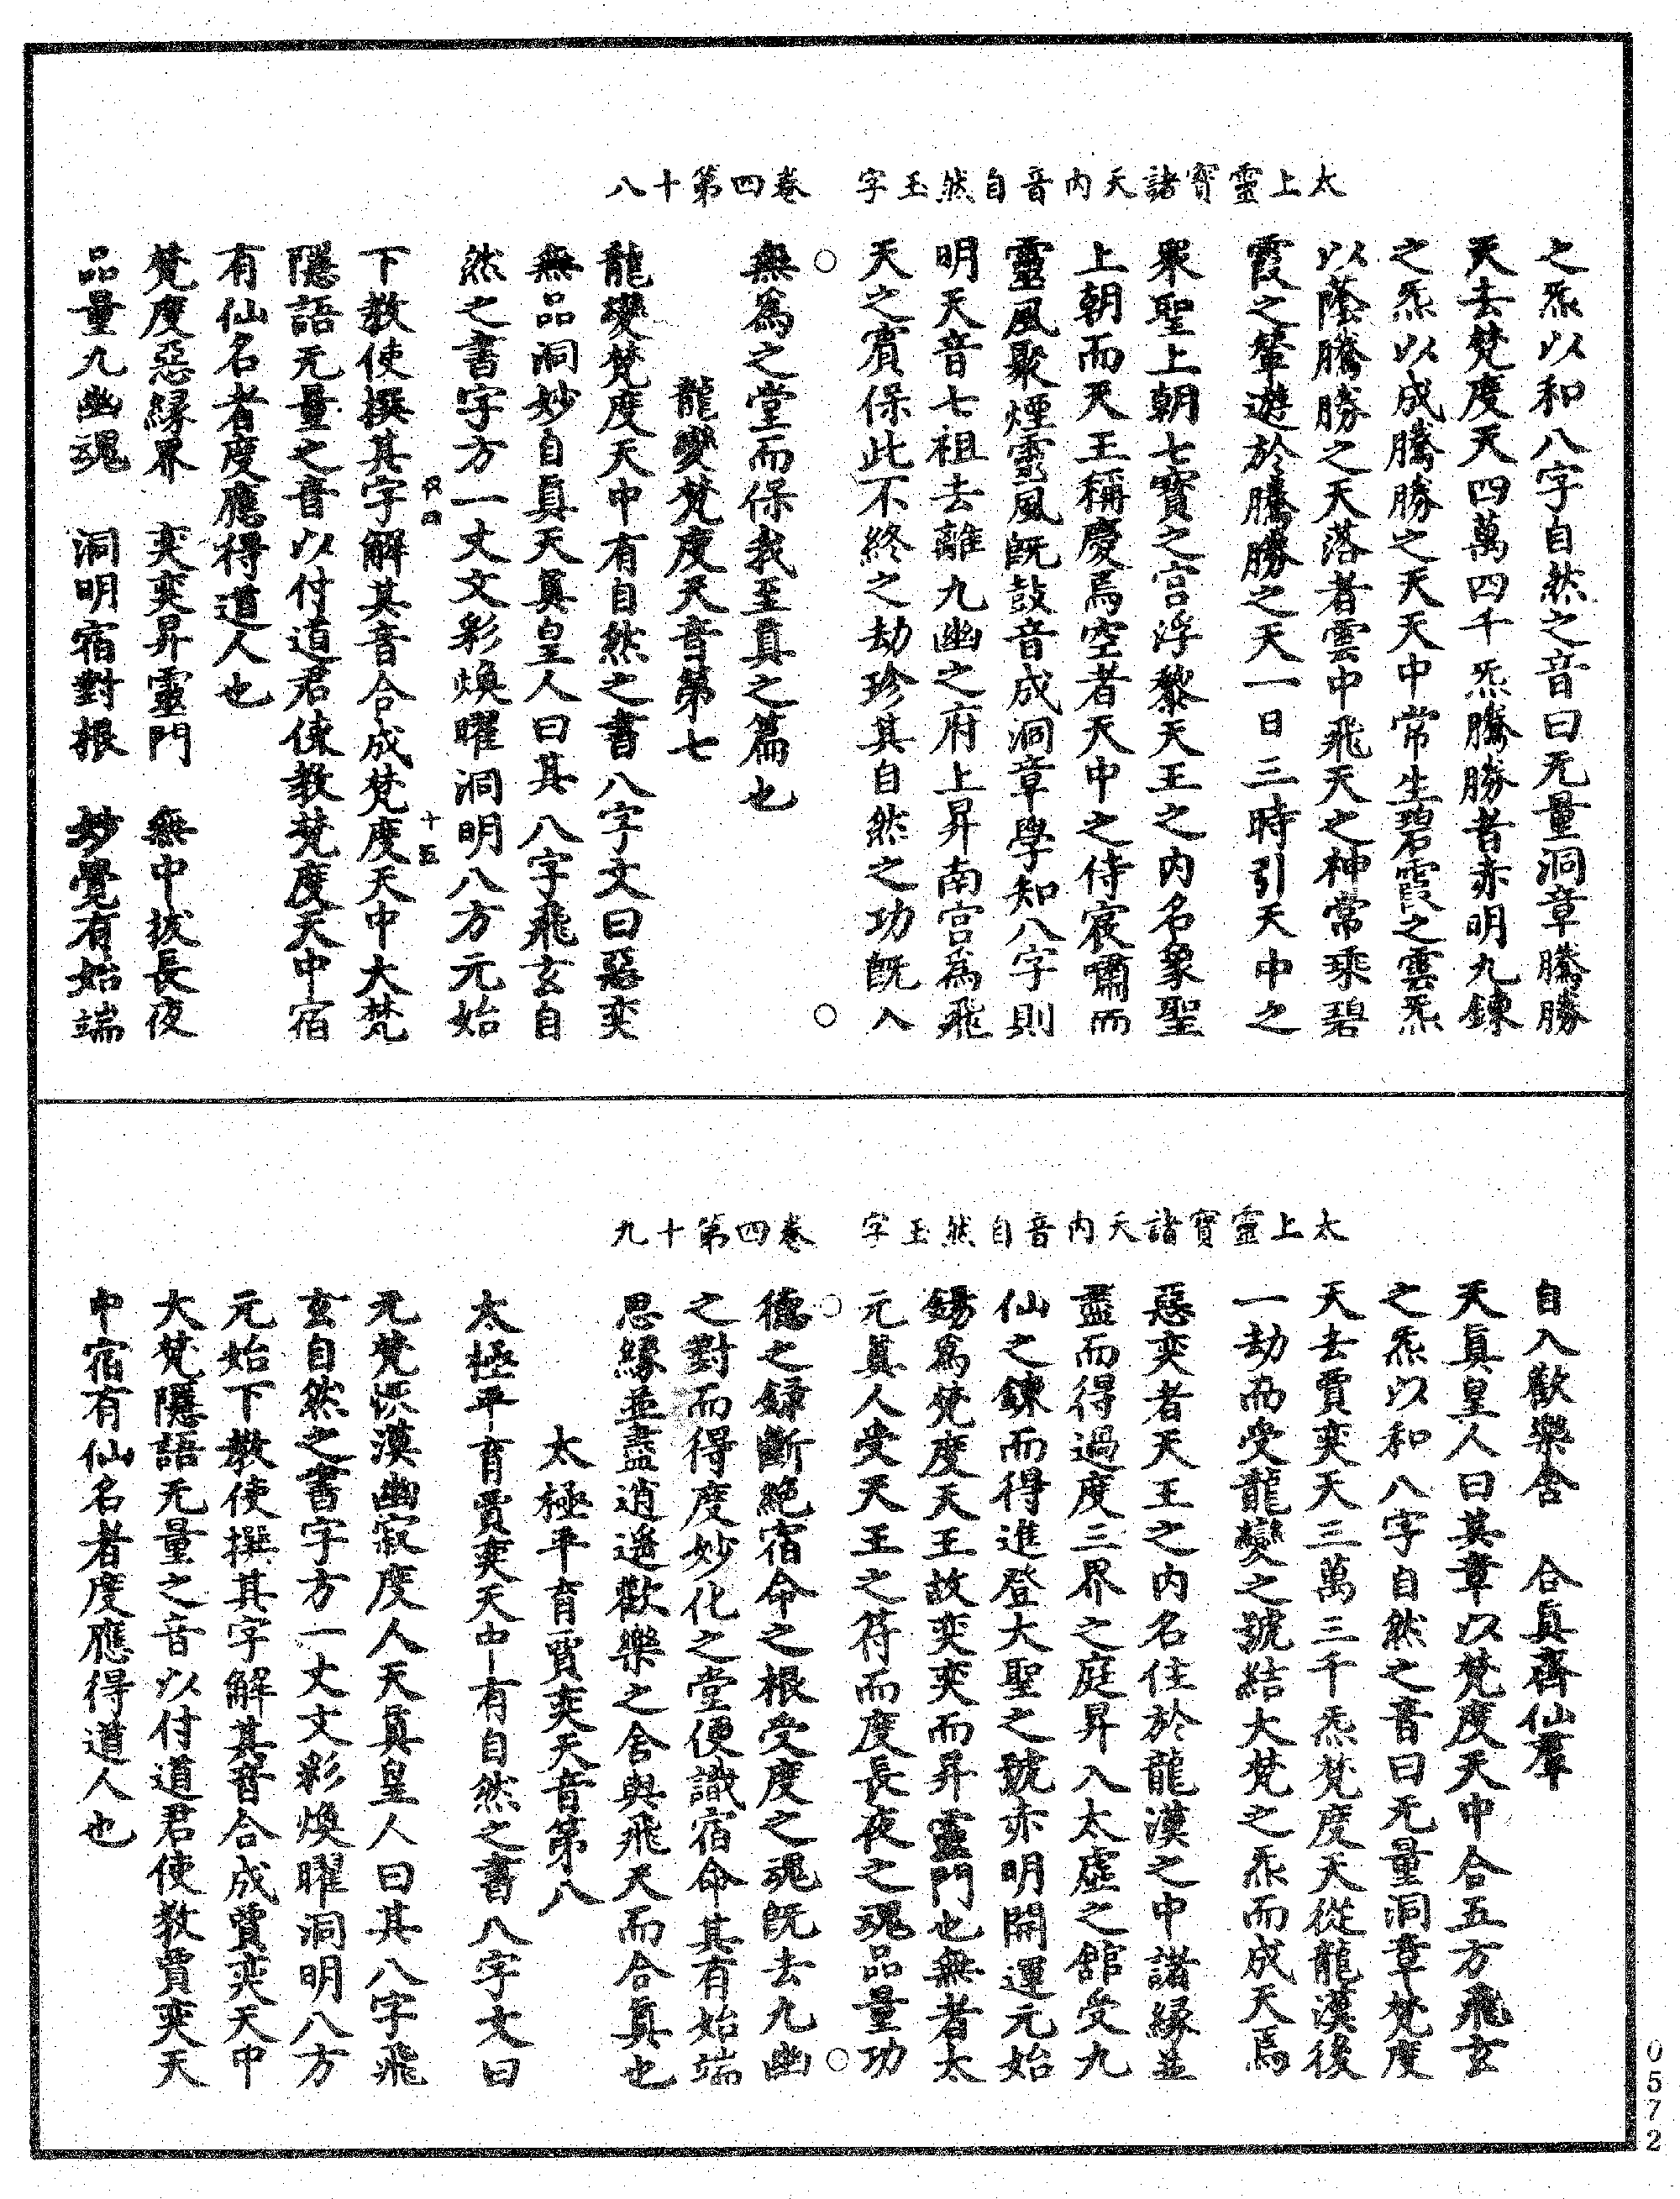 太上靈寶諸天內音自然玉字　卷四第十八
之炁以和八字自然之音曰无量洞章騰勝
天去梵度天四萬四千炁騰勝者亦明九鍊
之炁以成騰勝之天天中常生碧霞之雲炁
以蔭騰勝之天落者雲中飛天之神常乘碧
霞之輦遊於騰勝之天一日三時引天中之
衆聖上朝七寶之宮浮黎天王之內名象聖
上朝而天王稱慶焉空者天中之侍宸嘯而
靈風聚煙靈風旣鼓音成洞章學知八字則
明天音七祖去離九幽之府上昇南宮為飛
天之賓保此不終之劫珍其自然之功旣入
無為之堂而保我至真之篇也
龍變梵度天音第七
龍變梵度天中有自然之書八字文曰惡奕
無品洞妙自真天真皇人曰其八字飛玄自
然之書字方一丈文彩煥曜洞明八方元始
十五
下教使撰其字解其音合成梵度天中大梵
隱語无量之音以付道君使教梵度天中宿
有仙名者度應得道人也
梵度惡緣界　奕奕昇靈門　無中拔長夜
品量九幽魂　洞明宿對根　妙覺有始端
太上靈寶諸天內音自然玉字　卷四第十九
自入歡樂舍　合真齊仙羣
天真皇人曰其章以梵度天中合五方飛玄
之炁以和八字自然之音曰无量洞章梵度
天去賈奕天三萬三千炁梵度天從龍漢後
一劫而受龍變之號結大梵之炁而成天焉
惡奕者天王之內名住於龍漢之中諸緣並
盡而得過度三界之庭昇入太虛之館受九
仙之鍊而得進登大聖之號亦明開運元始
錫為梵度天王故奕奕而昇靈門也無者太
元真人受天王之符而度長夜之魂品量功
德之錄斷絕宿命之根受度之魂旣去九幽
之對而得度妙化之堂便識宿命其有始端
思緣並盡逍遙歡樂之舍與飛天而合真也
太極平育賈奕天音第八
太極平育賈奕天中有自然之書八字文曰
元梵恢漠幽寂度人天真皇人曰其八字飛
玄自然之書字方一丈文彩煥曜洞明八方
元始下教使撰其字解其音合成賈奕天中
大梵隱語无量之音以付道君使教賈奕天
中宿有仙名者度應得道人也
0572